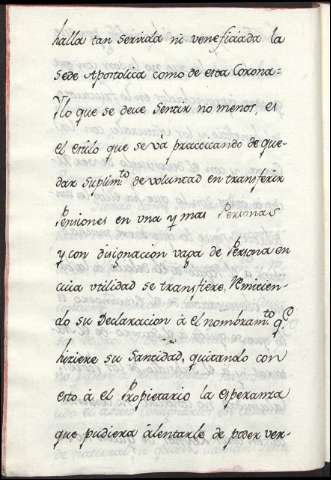 halla tan servida ni veneficiada la
Sede Apostolica como de esta Corona=
Ylo que se deve Sentir no menos, es
el estilo que se vá practicando de que-
dar Suplim.to de voluntad en transferir
Pensiones en una y mas Personas
y con disignacion vaga de Persona en
cuia utilidad se transfiere, Remitien-
do su Declaracion á el nombram.to q.e
hiziere su Santidad, quitando con
esto á el Propietario la esperanza
que pudiera alentarle de poder ver-